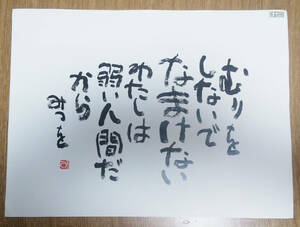 むりを
しないで
なまけない
わたしは
弱い人間だ
から
みつを